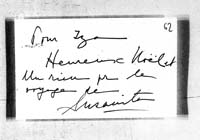 62
Pour Zya
Heureux Noël et
Un rien pr le
voyage de
Susanita